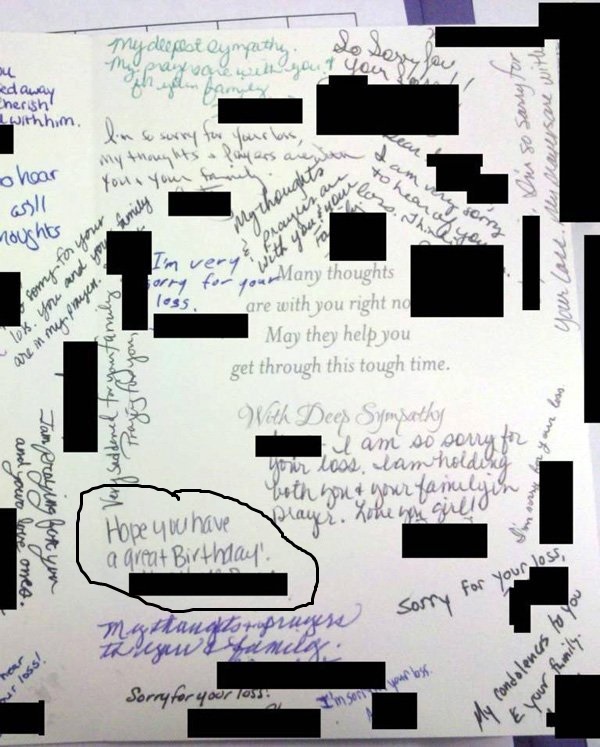 My deepest sympathy.
My prayers are with you &
your family
So Sorry for
your loss!!
I'm so sorry for
your loss. My prayers are with
ed away
cherish
d with him.
I'm so sorry for your loss,
My thoughts & Prayers are
You & your family.
I am very sorry
to hear of your
loss.
My thoughts
& prayers are
with you & your
o hear
as/ll
houghts
sorry for your
loss. you and your family
are in my prayers.
I'm very
sorry for your
loss.
Many thoughts
are with you right no
May they help you
get through this tough time.
With Deep Sympathy
Very saddened for your family
Praying for you,
I am so sorry for
your loss. I am holding
both you & your family in
prayer. Love you girl!
I'm sorry for your loss
I am praying for you
and your love ones.
Hope you have
a great Birthday!
Sorry for your loss,
My condolences to you
& your family.
My thoughts & prayers
to you & family.
hear
ur loss!
Sorry for your loss!
I'm sorry your loss.